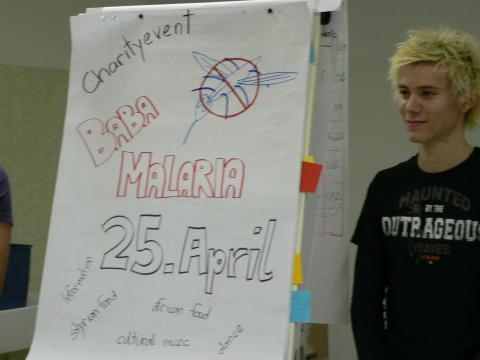 Charityevent
BABA
MALARIA
25. April
information
african food
cultural music
dance
HAUNTED
BY THE
OUTRAGEOUS